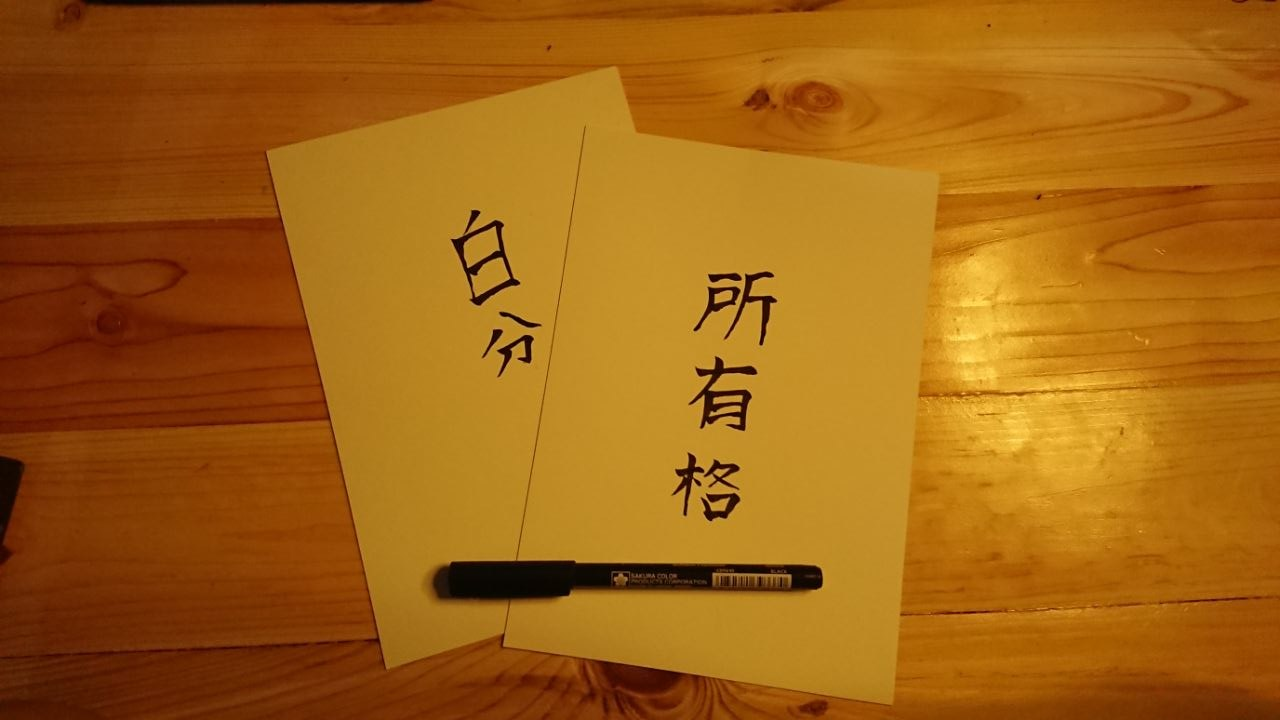 所有格
白分
SAKURA COLOR
PRODUCTS CORPORATION
BLACK